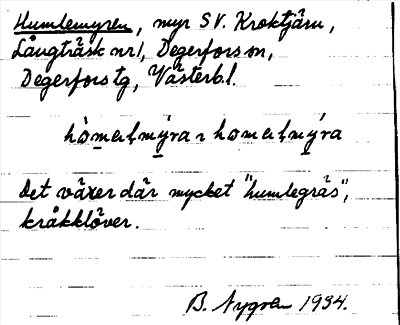 Humlemyren, myr SV. Kroktjärn,
Långträsk nr 1, Degerfors sn,
Degerfors tg, Västerb.l.
hòmeɭmýra ı homeɭmýra
Det växer där mycket "humlegräs",
kråkklöver.
B. Nygren 1934.